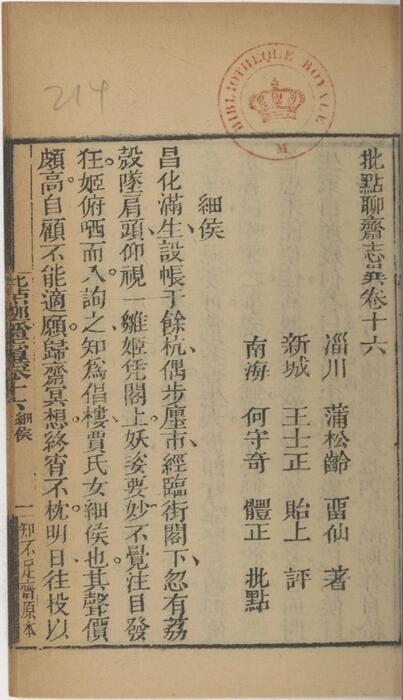 214
BIBLIOTHEQUE ROYALE
M
批點聊齋志異卷十六
淄川 蒲松齡 畱仙 著
新城 王士正 貽上 評
南海 何守奇 體正 批點
細侯
昌化滿生、設帳于餘杭、偶步廛市、經臨街閣下、忽有荔
殼墜肩頭、仰視一雛姬凭閣上、妖姿要妙、不覺注目發
狂。姬俯哂而入、詢之、知為倡樓賈氏女細侯也。其聲價
頗高、自顧不能適願。歸齋冥想、終宵不枕。明日、往投以
批點聊齋志異卷十六 細侯 一 知不足齋原本